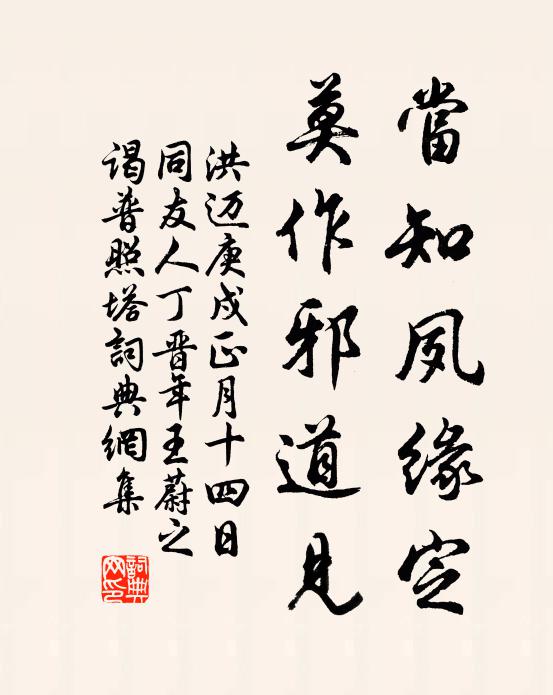 當知夙緣定
莫作邪道見
洪迈庚戌正月十四日
同友人丁晋年王蔚之
谒普照塔詞典網集
詞典网印